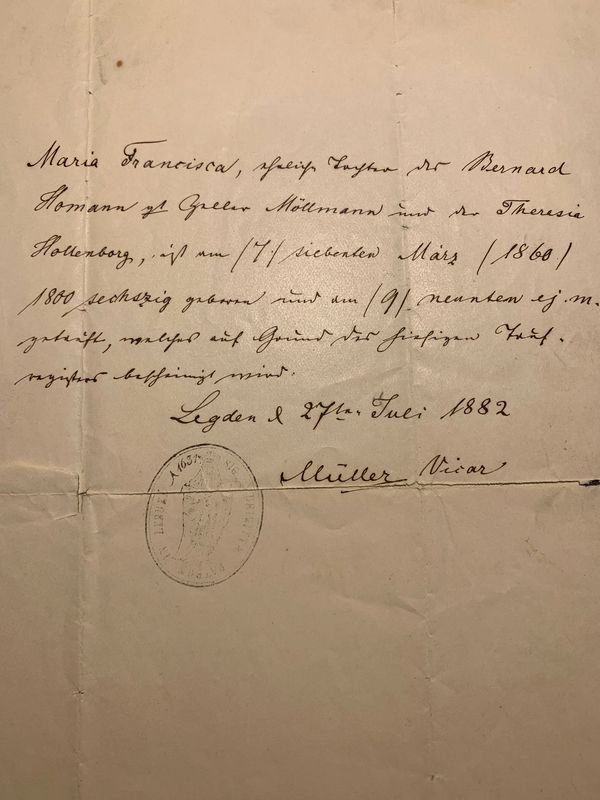 Maria Francisca, eheliche Tochter des Bernard
Homann gt Geller Möllmann und der Theresia
Hollenborg, ist am /7/ siebenten März /1860/
1800 sechszig geboren und am /9/ neunten ej. m.
getauft, welches auf Grund des hiesigen Tauf-
registers bescheinigt wird.
Legden d 27ten Juli 1882
Müller Vicar